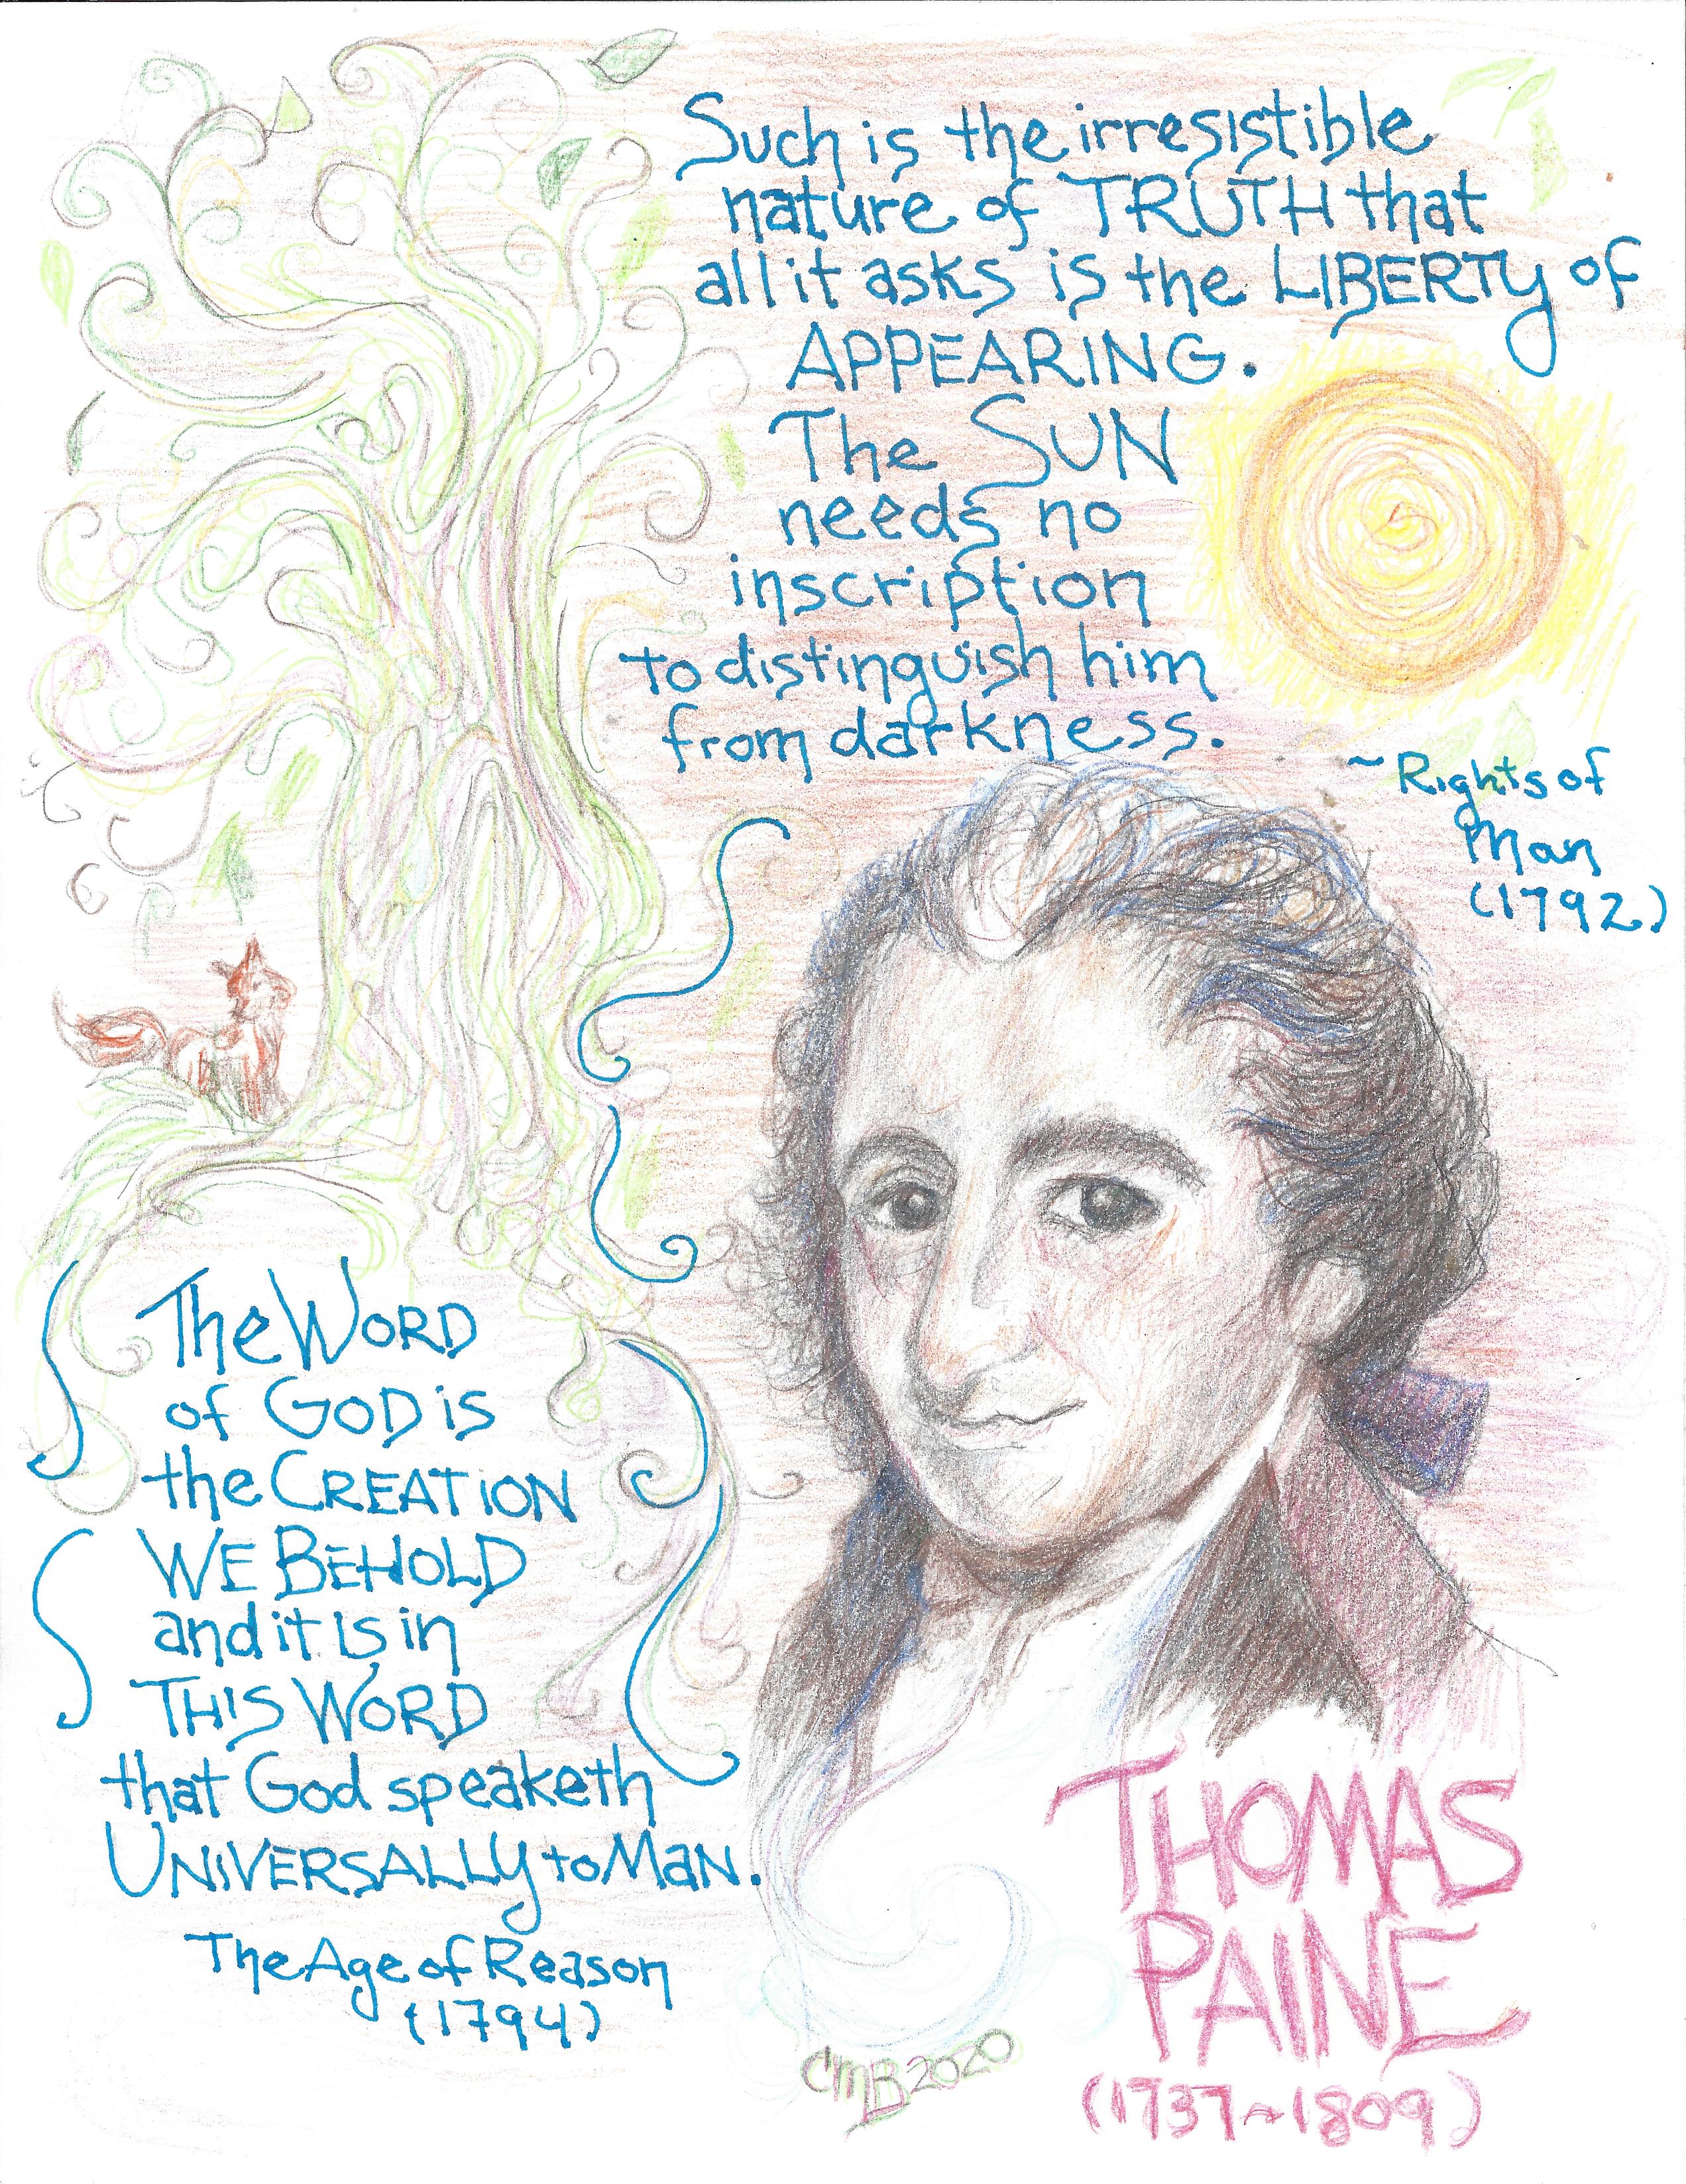 Such is the irresistible
nature of TRUTH that
all it asks is the LIBERTY of
APPEARING.
The SUN
needs no
inscription
to distinguish him
from darkness.
~Rights of
Man
(1792)
The WORD
of GOD is
the CREATION
WE BEHOLD
and it is in
THIS WORD
that God speaketh
UNIVERSALLY to MaN.
The Age of Reason
(1794)
THOMAS
PAINE
(1737~1809)
CMB 2020